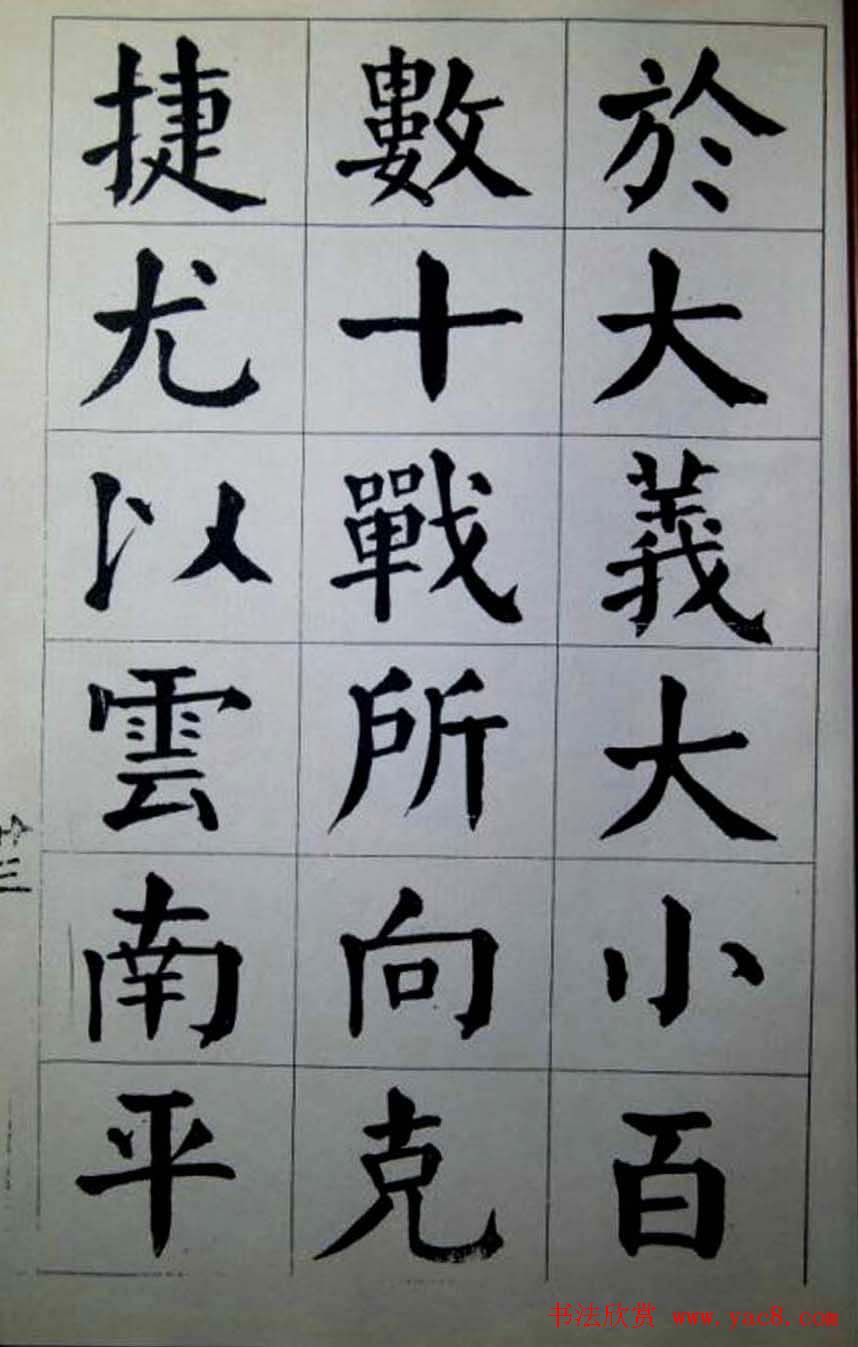 於大義大小百
數十戰所向克
捷尤以雲南平
廿三
书法欣赏 www.yac8.com